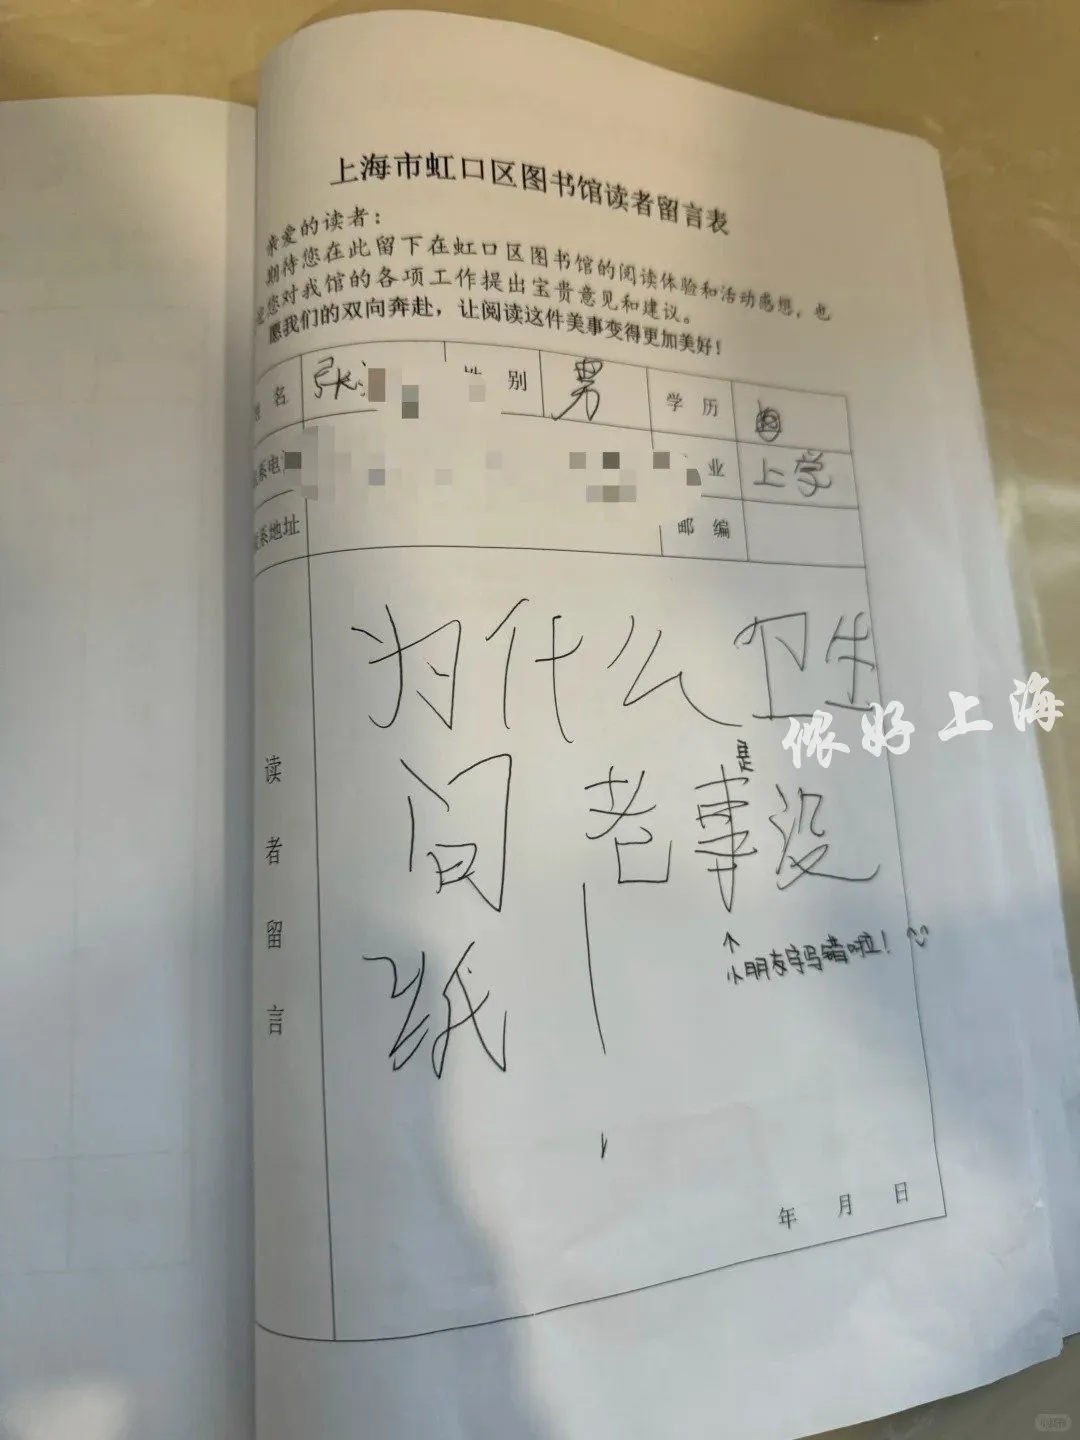 上海市虹口区图书馆读者留言表
亲爱的读者：
期待您在此留下在虹口区图书馆的阅读体验和活动感想，也
您对我馆的各项工作提出宝贵意见和建议。
愿我们的双向奔赴，让阅读这件美事变得更加美好！
名 张 别 男 学 历
系电 业 上学
系地址 邮 编
读者留言
为什么卫生
间老事没
是
纸！
↑
小朋友字写错啦！
年 月 日
侬好上海
小红书